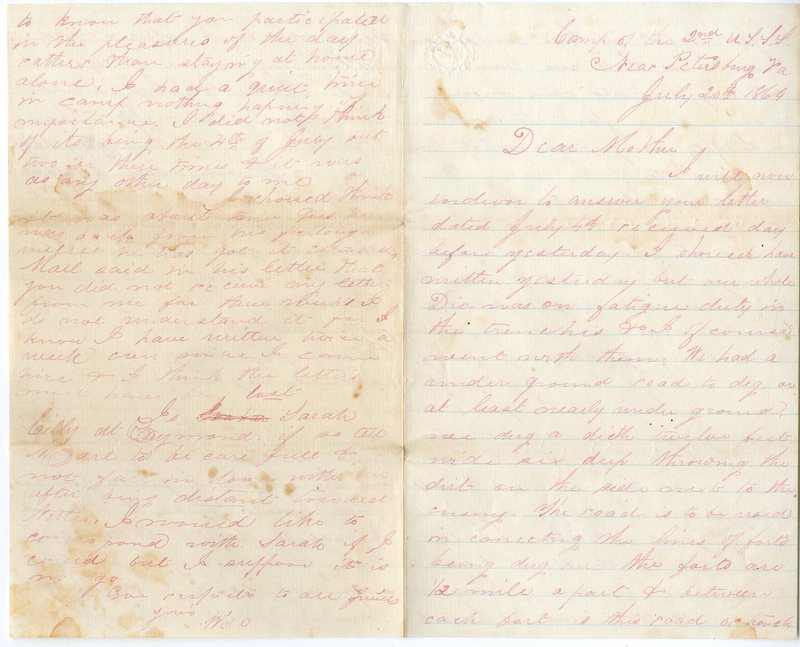 Camp of the 2nd U.S.S.S
Near Petersburg Va
July 20th 1864
Dear Mother
I will now
endevor to answer your letter
dated July 4th received day
before yesterday. I should have
written yesterday but our whole
Div was on fatigue duty in
the trenches & I of course
went with them. We had a
under ground road to dig or
at least nearly under ground,
we dug a dich twelve feet
wide six deep throwing the
dirt on the side next to the
enemy. The road is to be used
in conecting the lines of forts
being dug here the forts are
1/2 mile apart & between
each fort is this road or trench
to know that you participated
in the pleasures of the day
rather than staying at home
alone. I had a quiet time
in camp nothing hapning of
importance. I did not think
of its being the 4th of July but
two or three times & it was
as any other day to me
I should think
it was about time
was back from his furlough
he has got it
Mall said in his letter that
you did not receive any letters
from me for three weeks I
do not understand it for I
know I have written twice a
week ever since I came
here & I think the letters
must have been lost
Is Sarah
Lilly at Raymond. if so tell
to be care full &
not fall in love with her
after being distant
I would like to
corespond with Sarah if I
could but I suppose it is
no go
respects to all
yours